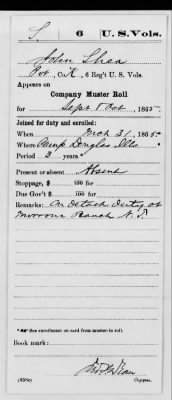 S. 6 U.S. Vols.
John Shea
Pvt, Co. K, 6 Reg't U. S. Vols.
Appears on
Company Muster Roll
for Sept & Oct, 1865.
Joined for duty and enrolled:
When Mch 31, 1865.
Where Camp Douglas Ills.
Period 3 years*
Present or absent Absent
Stoppage, $ 100 for
Due Gov't $ 100 for
Remarks: On Detach Duty at
Ranch N. T.
*See enrollment on card from muster-in roll.
Book mark:
Copyist.